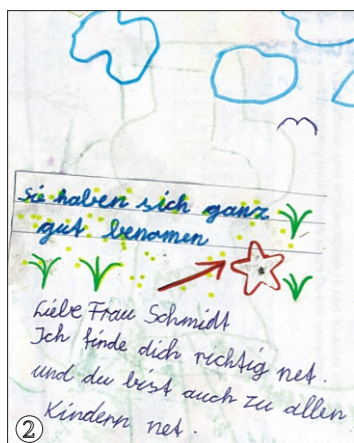 Sie haben sich ganz
gut benomen
Liebe Frau Schmidt
Ich finde dich richtig net.
und du bist auch zu allen
Kindern net.
②